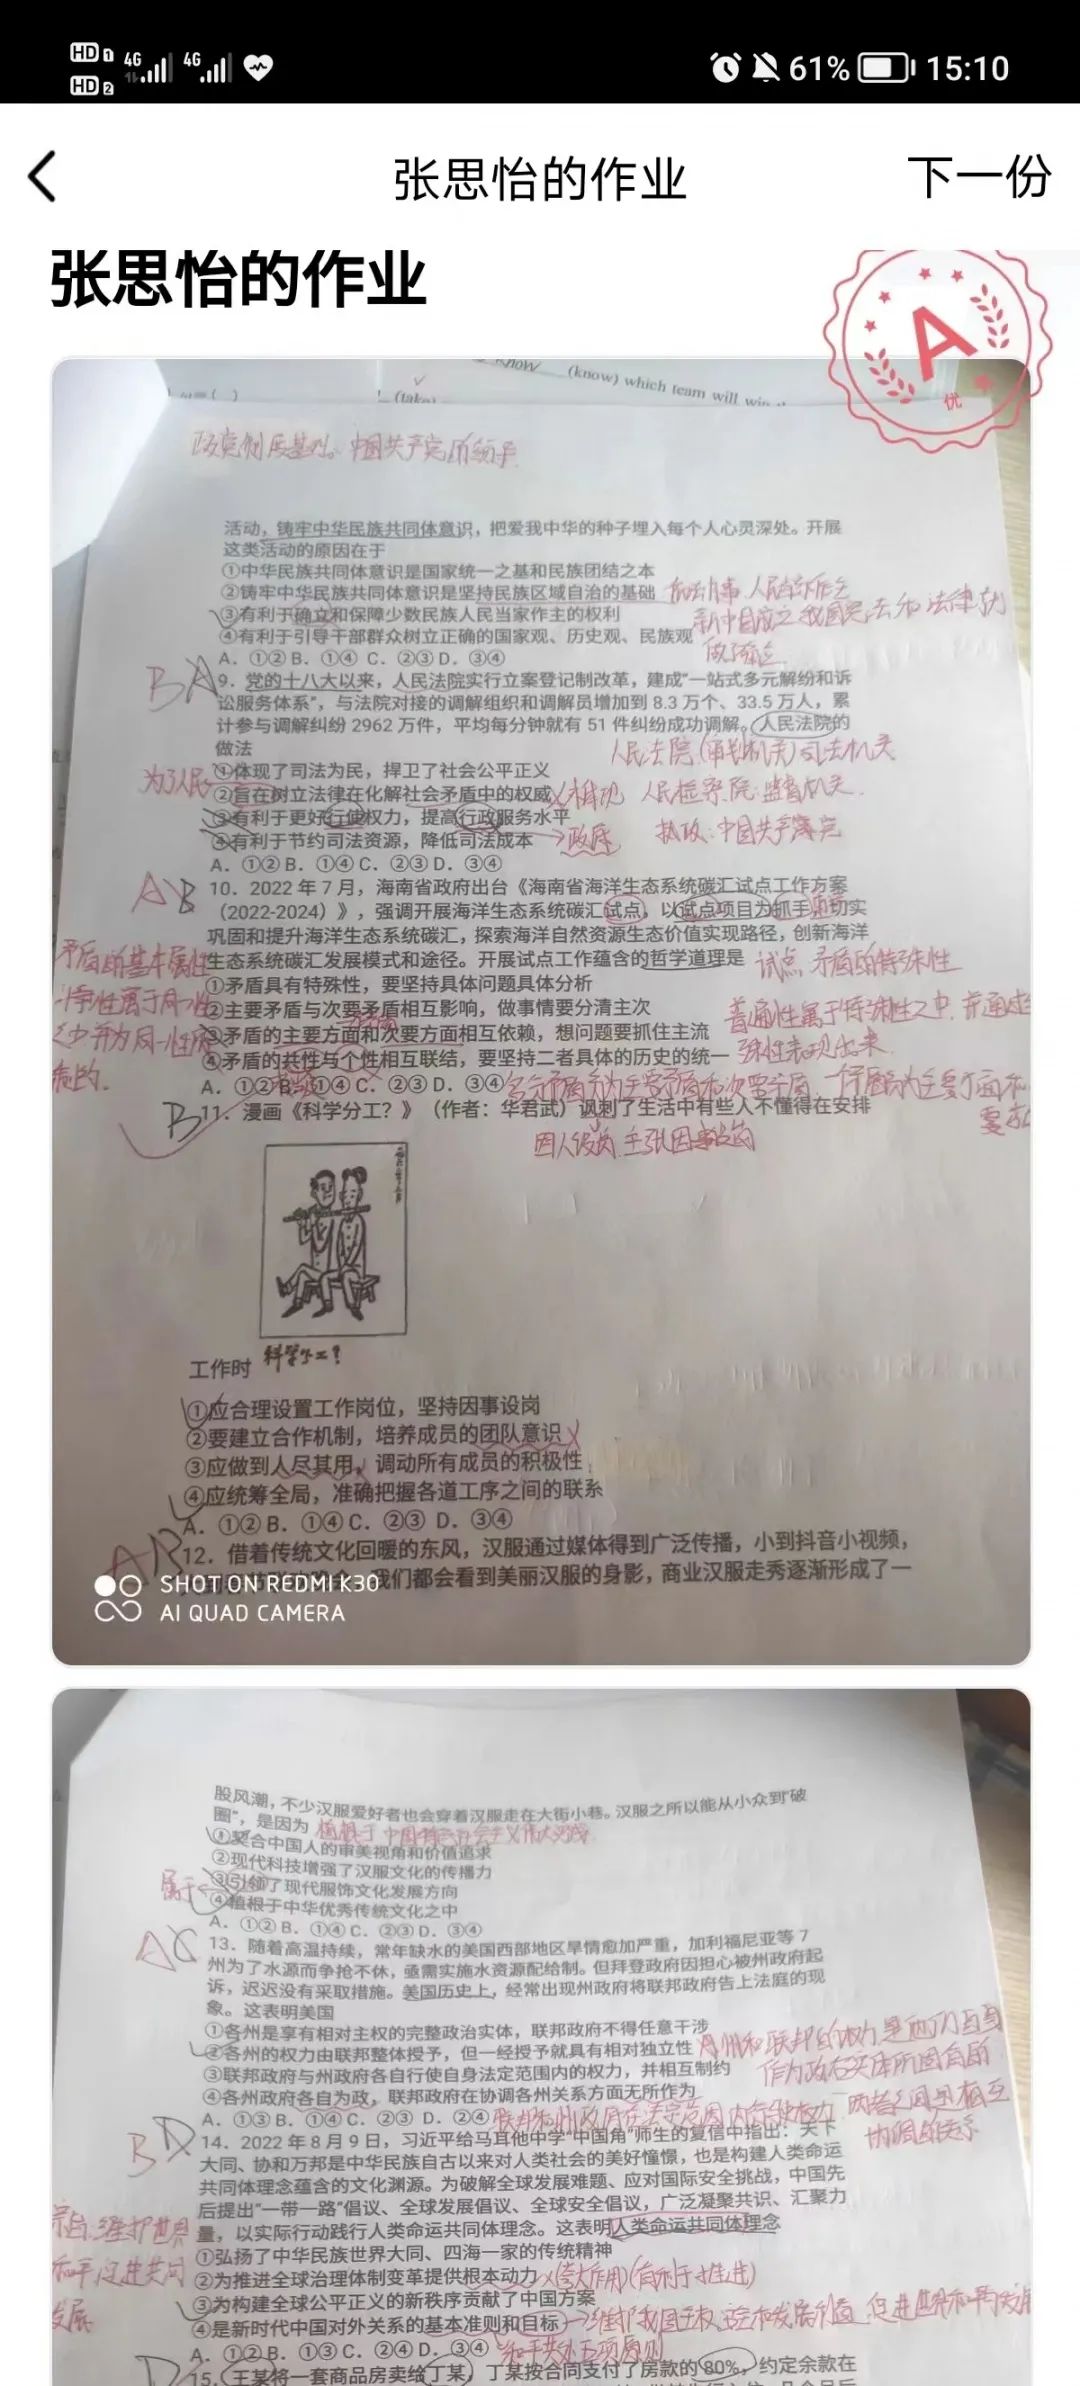 HD 1 4G 4G 61% 15:10
HD 2
张思怡的作业 下一份
张思怡的作业
A
优
know (know) which team will win
(take)
中国共产党
活动，铸牢中华民族共同体意识，把爱我中华的种子埋入每个人心灵深处。开展
这类活动的原因在于
①中华民族共同体意识是国家统一之基和民族团结之本
②铸牢中华民族共同体意识是坚持民族区域自治的基础
③有利于确立和保障少数民族人民当家作主的权利
新中国成立 我国宪法和法律就
④有利于引导干部群众树立正确的国家观、历史观、民族观
做了确立
A．①② B．①④ C．②③ D．③④
B A
9．党的十八大以来，人民法院实行立案登记制改革，建成“一站式多元解纷和诉
讼服务体系”，与法院对接的调解组织和调解员增加到 8.3 万个、33.5 万人，累
计参与调解纠纷 2962 万件，平均每分钟就有 51 件纠纷成功调解。人民法院的
做法
人民法院(审判机关)司法机关
为了人民
①体现了司法为民，捍卫了社会公平正义
②旨在树立法律在化解社会矛盾中的权威 体现 人民检察院:监督机关
③有利于更好行使权力，提高行政服务水平
④有利于节约司法资源，降低司法成本 政府 执政:中国共产党
A．①② B．①④ C．②③ D．③④
A B
10．2022 年 7 月，海南省政府出台《海南省海洋生态系统碳汇试点工作方案
（2022-2024）》，强调开展海洋生态系统碳汇试点，以试点项目为抓手，切实
巩固和提升海洋生态系统碳汇，探索海洋自然资源生态价值实现路径，创新海洋
矛盾的基本属性
生态系统碳汇发展模式和途径。开展试点工作蕴含的哲学道理是 试点 矛盾的特殊性
①矛盾具有特殊性，要坚持具体问题具体分析
②主要矛盾与次要矛盾相互影响，做事情要分清主次
普遍性属于特殊性之中
③矛盾的主要方面和次要方面相互依赖，想问题要抓住主流
④矛盾的共性与个性相互联结，要坚持二者具体的历史的统一 殊性表现出来
A．①② B．①④ C．②③ D．③④
B
11．漫画《科学分工？》（作者：华君武）讽刺了生活中有些人不懂得在安排
因人设岗 主张因事设岗
科学分工?
工作时
①应合理设置工作岗位，坚持因事设岗
②要建立合作机制，培养成员的团队意识
③应做到人尽其用，调动所有成员的积极性
④应统筹全局，准确把握各道工序之间的联系
A．①② B．①④ C．②③ D．③④
A B
12．借着传统文化回暖的东风，汉服通过媒体得到广泛传播，小到抖音小视频，
我们都会看到美丽汉服的身影，商业汉服走秀逐渐形成了一
SHOT ON REDMI K30
AI QUAD CAMERA
股风潮，不少汉服爱好者也会穿着汉服走在大街小巷。汉服之所以能从小众到“破
圈”，是因为 植根于中国特色社会主义伟大实践
①契合中国人的审美视角和价值追求
②现代科技增强了汉服文化的传播力
属于
③引领了现代服饰文化发展方向
④植根于中华优秀传统文化之中
A．①② B．①④ C．②③ D．③④
A C
13．随着高温持续，常年缺水的美国西部地区旱情愈加严重，加利福尼亚等 7
州为了水源而争抢不休，亟需实施水资源配给制。但拜登政府因担心被州政府起
诉，迟迟没有采取措施。美国历史上，经常出现州政府将联邦政府告上法庭的现
象。这表明美国
①各州是享有相对主权的完整政治实体，联邦政府不得任意干涉
②各州的权力由联邦整体授予，但一经授予就具有相对独立性 州和联邦的权力是两方自身
③联邦政府与州政府各自行使自身法定范围内的权力，并相互制约 作为政治实体所固有的
④各州政府各自为政，联邦政府在协调各州关系方面无所作为
A．①③ B．①④ C．②③ D．②④
B D
14．2022 年 8 月 9 日，习近平给马耳他中学“中国角”师生的复信中指出：天下
大同、协和万邦是中华民族自古以来对人类社会的美好憧憬，也是构建人类命运
共同体理念蕴含的文化渊源。为破解全球发展难题、应对国际安全挑战，中国先
后提出“一带一路”倡议、全球发展倡议、全球安全倡议，广泛凝聚共识、汇聚力
宗旨:维护世界
量，以实际行动践行人类命运共同体理念。这表明人类命运共同体理念
①弘扬了中华民族世界大同、四海一家的传统精神
和平,促进共同
②为推进全球治理体制变革提供根本动力 夸大作用(有利于推进)
③为构建全球公平正义的新秩序贡献了中国方案
发展
④是新时代中国对外关系的基本准则和目标
A．①② B．①③ C．②④ D．③④ 和平共处五项原则
D
15．王某将一套商品房卖给丁某，丁某按合同支付了房款的 80%，约定余款在